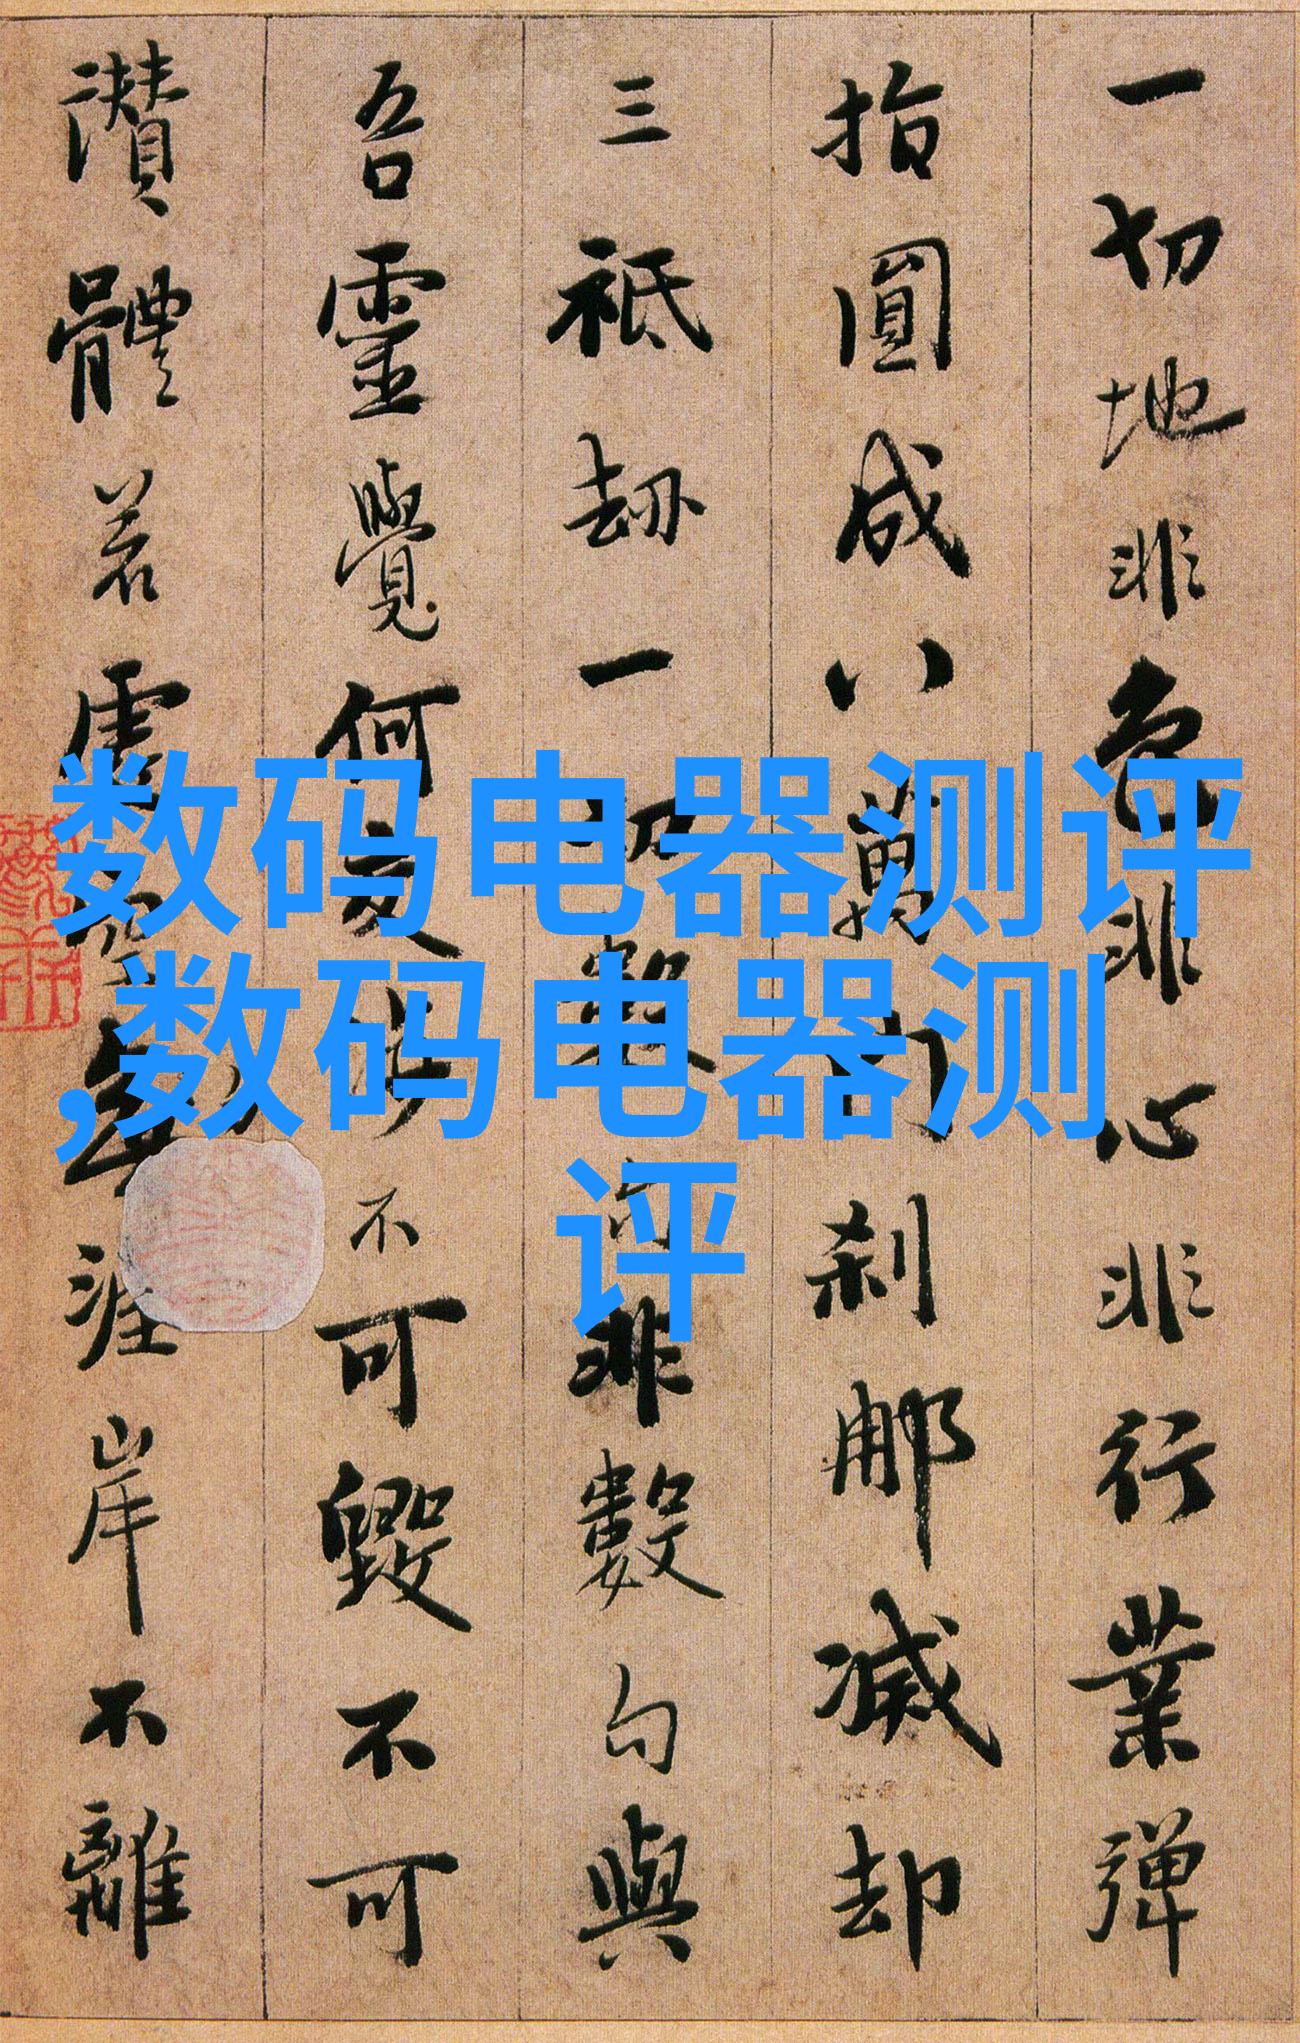 一切地非色非心非行業彈
指圓成八萬門刹那滅却
三祇劫一切數句非數句與
吾靈覺何交涉不可毀不可
讚體若虛空無涯岸不離
数码电器测评
,数码电器测
评